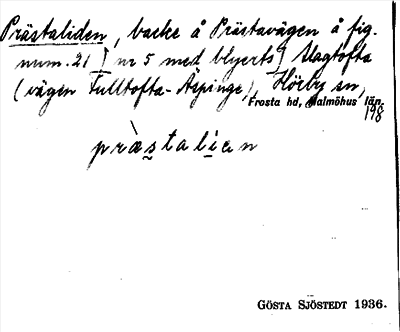 Prästaliden, backe å Prästavägen å fig.
num. 21) nr 5 med blyerts) Slagtofta
(vägen Fulltofta-Äspinge), Hörby sn,
Frosta hd, Malmöhus län.
198
prästali̯an
GÖSTA SJÖSTEDT 1936.